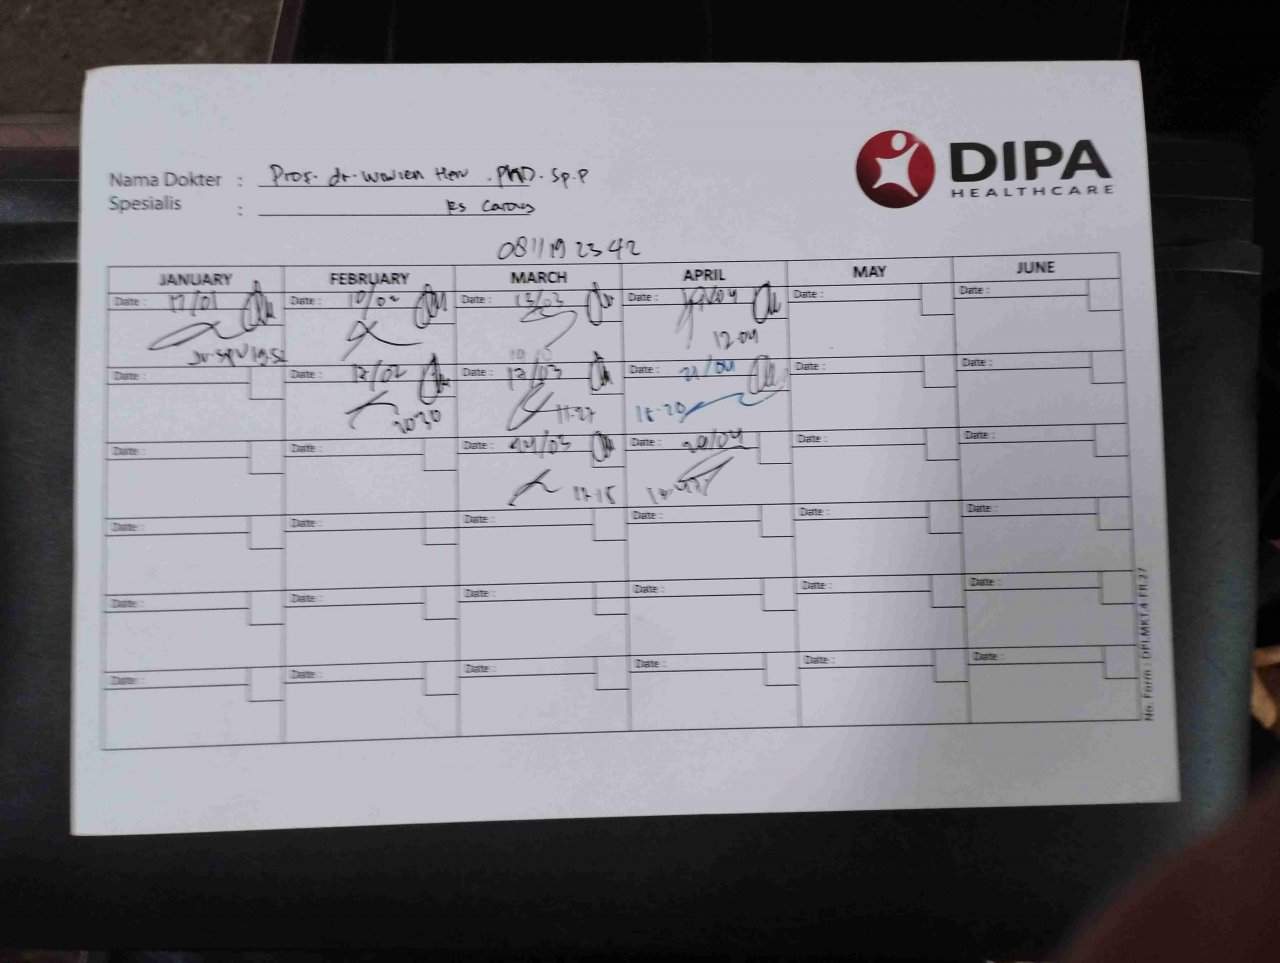 DIPA
HEALTHCARE
Nama Dokter : Prof. dr. Wawien Heru . PhD. Sp.P
Spesialis : RS Carolus
0811 19 23 42
JANUARY FEBRUARY MARCH APRIL MAY JUNE
Date : 17/01 Date : 10/02 Date : 13/03 Date : /04 Date : Date :
19.52 12.04
Date : Date : 12/02 Date : 17/03 Date : 21/04 Date : Date :
2030 11.27 18.20
Date : Date : Date : 24/03 Date : 29/04 Date : Date :
17.15
Date : Date : Date : Date : Date : Date :
Date : Date : Date : Date : Date : Date :
Date : Date : Date : Date : Date : Date :
No. Form : DPI.MKT.4-FR.27